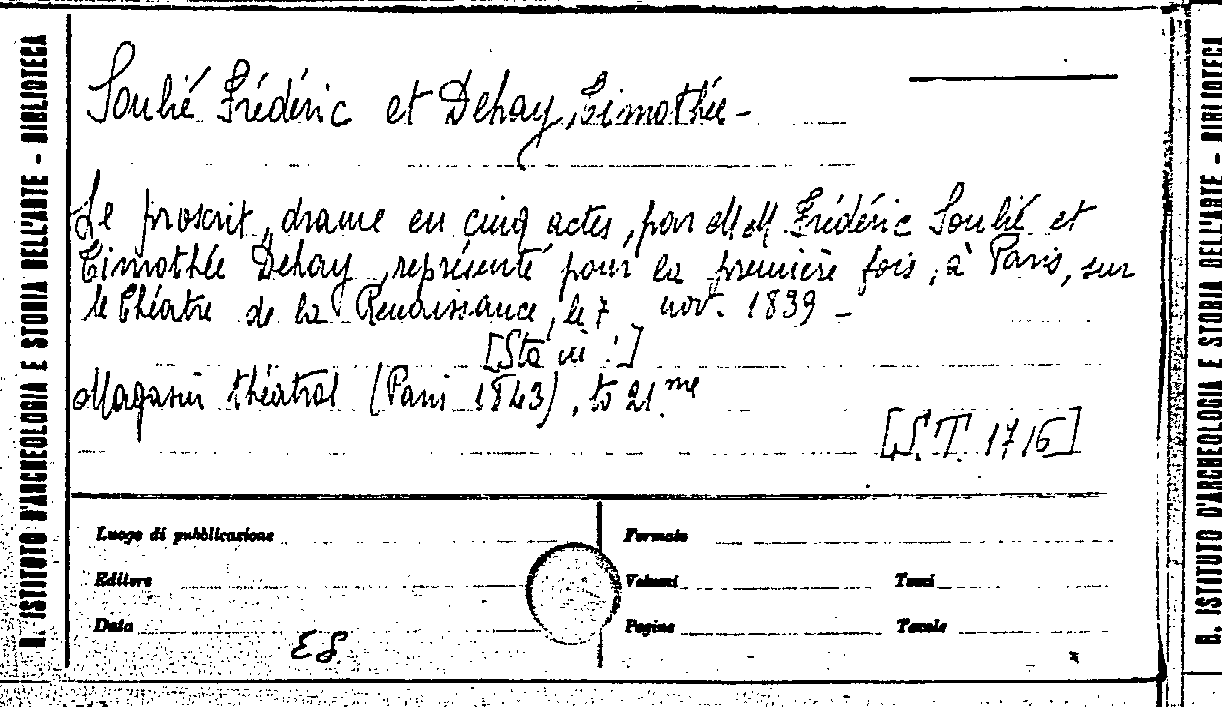 Soulié Frédéric et Dehay, Timothée -
Le proscrit, drame en cinq actes, par MM Frédéric Soulié et
Timothée Dehay, représenté pour la première fois, à Paris, sur
le théatre de la Renaissance, le 7 nov. 1839 -
[Sta in:]
Magasin théatral (Paris 1843), to 21.me
[S.T. 17/6]
Luogo di pubblicazione
Formato
Editore
Volumi
Tomi
Data
Pagine
Tavole
ES.
R. ISTITUTO D'ARCHEOLOGIA E STORIA DELL'ARTE - BIBLIOTECA
R. ISTITUTO D'ARCHEOLOGIA E STORIA DELL'ARTE - BIBLIOTECA